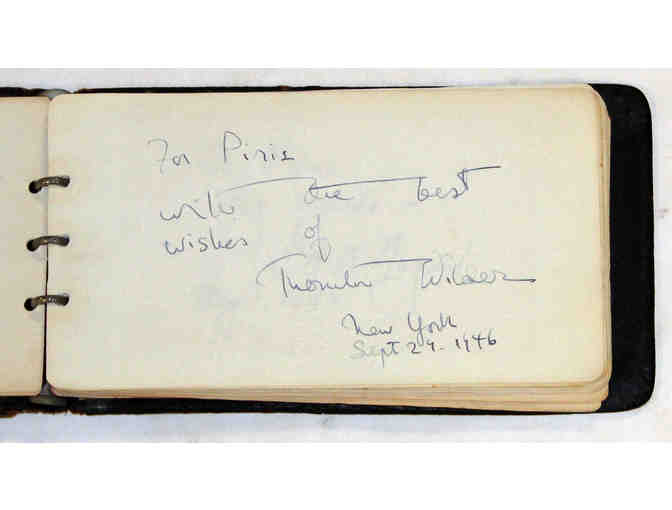 For Piris
with the best
wishes of
Thornton Wilder
New York
Sept 29 - 1946